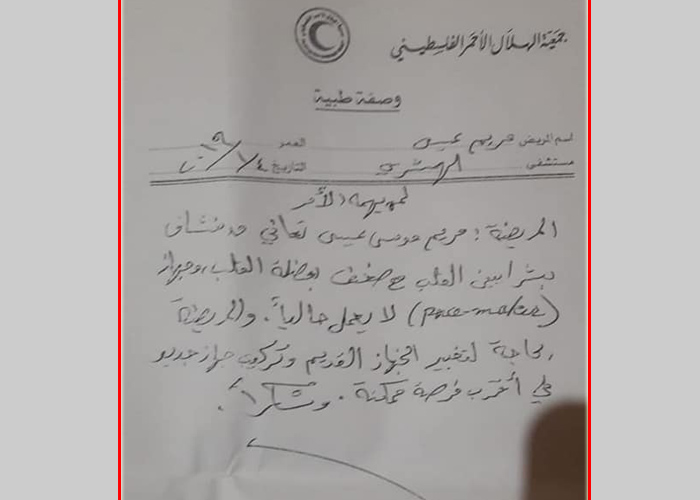 جمعية الهلال الأحمر الفلسطيني
وصفة طبية
اسم المريض مريم عيسى العمر
مستشفى الهمشري التاريخ ١٤/
لمن يهمه الأمر
المريضة : مريم موسى عيسى تعاني من نشاف
بشرايين القلب مع ضعف بعضلة القلب، وجهاز
(pace-maker) لا يعمل حالياً. والمريضة
بحاجة لتغيير الجهاز القديم وتركيب جهاز جديد
في أقرب فرصة ممكنة. وشكراً.